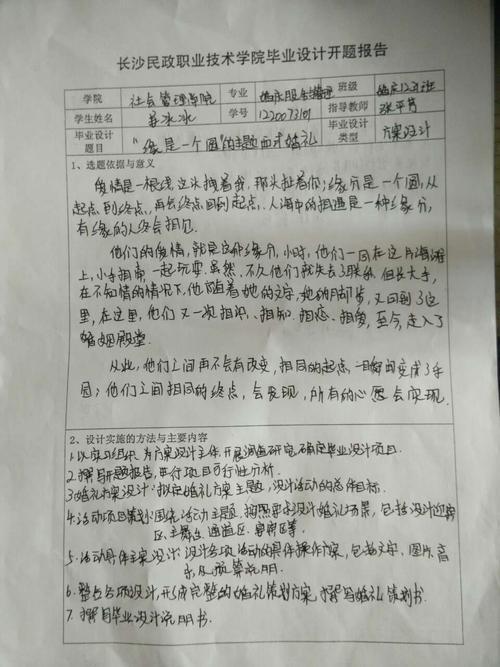 长沙民政职业技术学院毕业设计开题报告
学院 社会管理学院 专业 班级 婚庆1231班
学生姓名 姜冰冰 学号 1220073101 指导教师
毕业设计题目 “缘是一个圆”的主题西式婚礼 毕业设计类型 方案设计
1、选题依据与意义
爱情是一根线,这头拽着我,那头扯着你;缘分是一个圆,从
起点到终点,再由终点回到起点,人海中的相遇是一种缘分,
有缘的人终会相
他们的爱情,就是这种缘分,小时,他们一同在这片海滩
上,小手相牵一起玩耍.虽然,不久他们就失去了联系.但长大于,
在不知情的情况下,他随着她的文字,她的脚步,又回到了这
里,在这里,他们又一次相识、相知、相恋、相爱,至今,走入了
婚姻殿堂.
从此,他们之间再不会有改变,相同的起点,一瞬间变成了半
圆;他们之间相同的终点,会发现,所有的心愿会实现.
2、设计实施的方法与主要内容
1.以实习组织、为方案设计主体,开展调查研究,确定毕业设计项目.
2.撰写开题报告,进行项目可行性分析.
3.婚礼方案设计:拟定婚礼方案主题,设计活动的总体目标.
4.活动项目策划:围绕活动主题.按照要求设计婚礼场景,包括设计迎宾
区、主舞台、通道区、宾客区等.
5.活动具体方案设计:设计各项活动的具体操作方案,包括文字、图片、音
乐及预算说明.
6.整合各项设计,形成完整的婚礼策划方案,撰写婚礼策划书.
7.撰写毕业设计说明书.